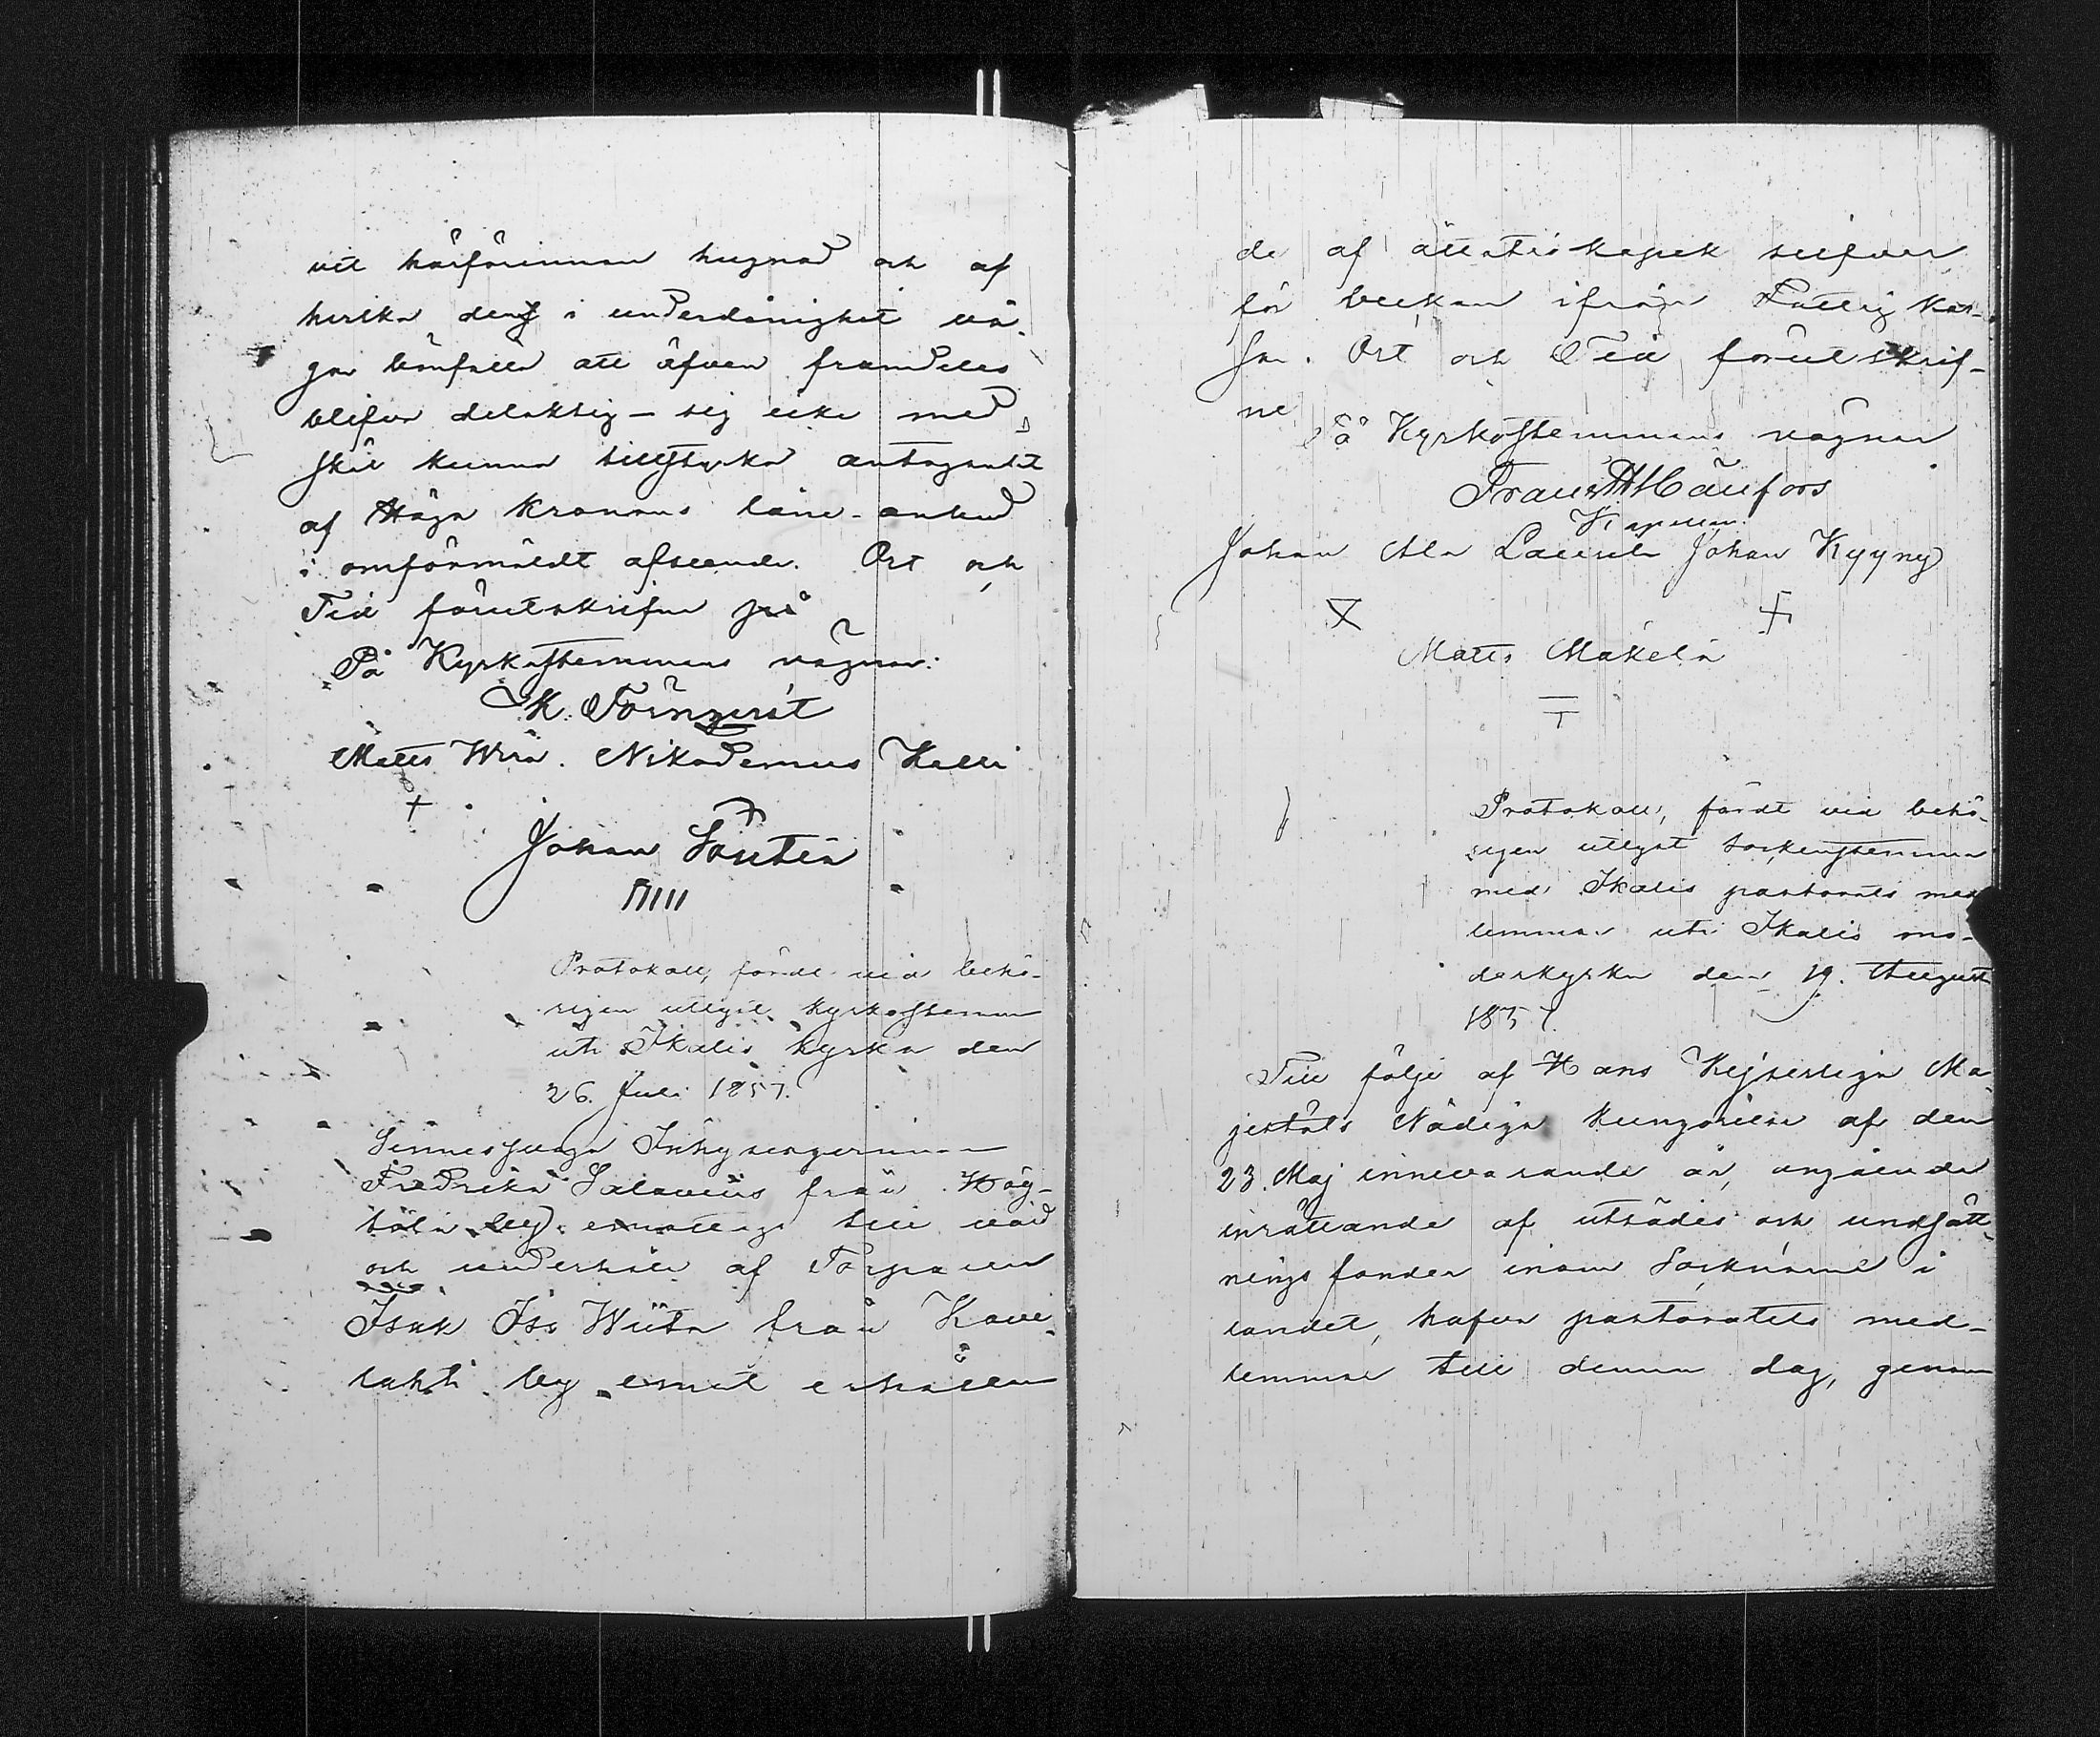 vit härförinnan hugnad och af
hvilka den i underdånighet vå-
gar bönfalla att äfven framdeles
blifva delaktig – sig icke med
skäl kunna tillstyrka antagandet
af Höga Kronans låne-anbud
i omförmäldt afseende. Ort och
Tid förutskrifne på
På Kyrkostemmans vägnar:
K. Törnqvist
Matts Wirä. Nikodemus Kalli
Johan Soutia
Protokoll, fördt vid behö-
rigen utlyst kyrkostemma
uti Ikalis kyrka den
26. Juli 1857.
Sinnessvaga Inhysesqvinnan
Fredrika Salovius från Hög-
by emottags till vård
och underhåll af Torparen
Isak Iss Wiita från Kovi-
lahti by emot erhållen
de af åttatio kopek silfver
för veckan ifrån Fattig kas-
san. Ort och Tid förutskrif-
ne
På Kyrkostemmans vägnar
Frans H Hänfors
Kapellan.
Johan Ala Laurila Johan Kyyny
Matts Mäkelä
Protokoll, fördt vid behö-
rigen utlyst Sockenstemma
med Ikalis pastorats med
lemmar uti Ikalis mo-
derkyrka den 19. August
1857.
Till följe af Hans Kejserliga Ma-
jestäts Nådiga Kungörelse af den
23. Maj innevarande år, angående
inrättande af utsädes och undsätt-
nings fonder inom Socknarne i
landet, hafva pastoratets med-
lemmar till denna dag, genom